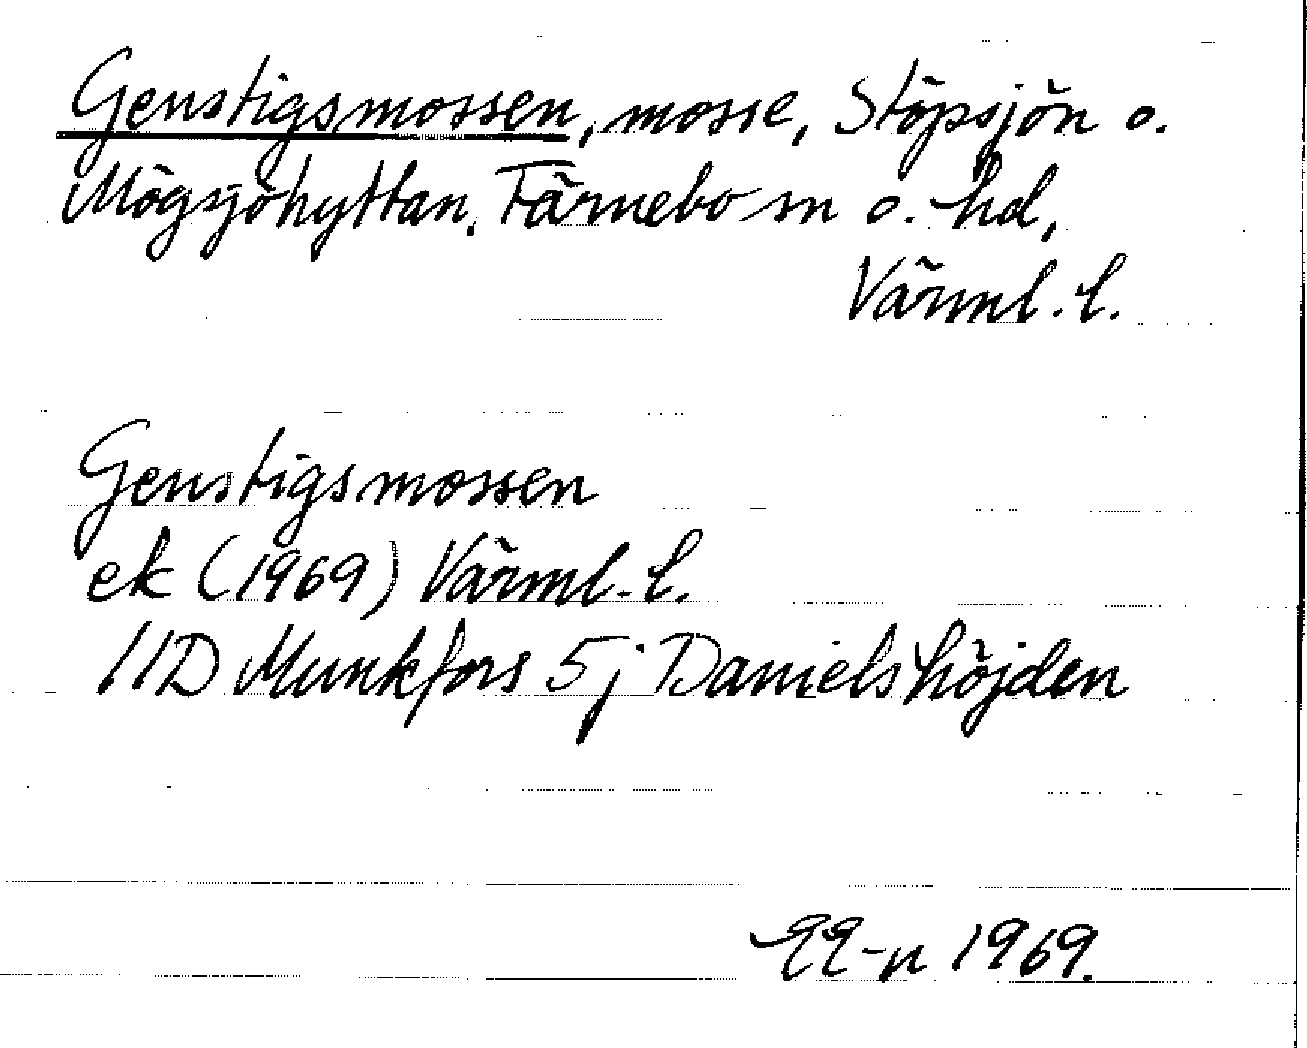 Genstigsmossen, mosse, Stöpsjön o.
Mögsjöhyttan, Färnebo sn o. hd,
Värml. l.
Genstigsmossen
ek (1969) Värml. l.
11D Munkfors 5j Danielshöjden
1969.